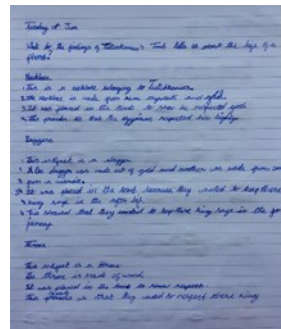 Tuesday 1st Jan
What do the findings of Tutankhamun's Tomb tells us about the life of a
pharaoh?
Necklace
This is a necklace belonging to Tutankhamun
The necklace is made from and gold
It was placed in the tomb to
This provides us that the Egyptians respected him highly
Daggers
This object is a dagger
One dagger was made out of gold and another was made from
from a meteorite.
It was placed in the tomb because they wanted to keep there
king safe in the after life
This showed that they wanted to keep there king safe in the
journey
Throne
This object is a throne
The throne is made of wood
It was placed in the tomb to show respect.
This is that they used to respect there king